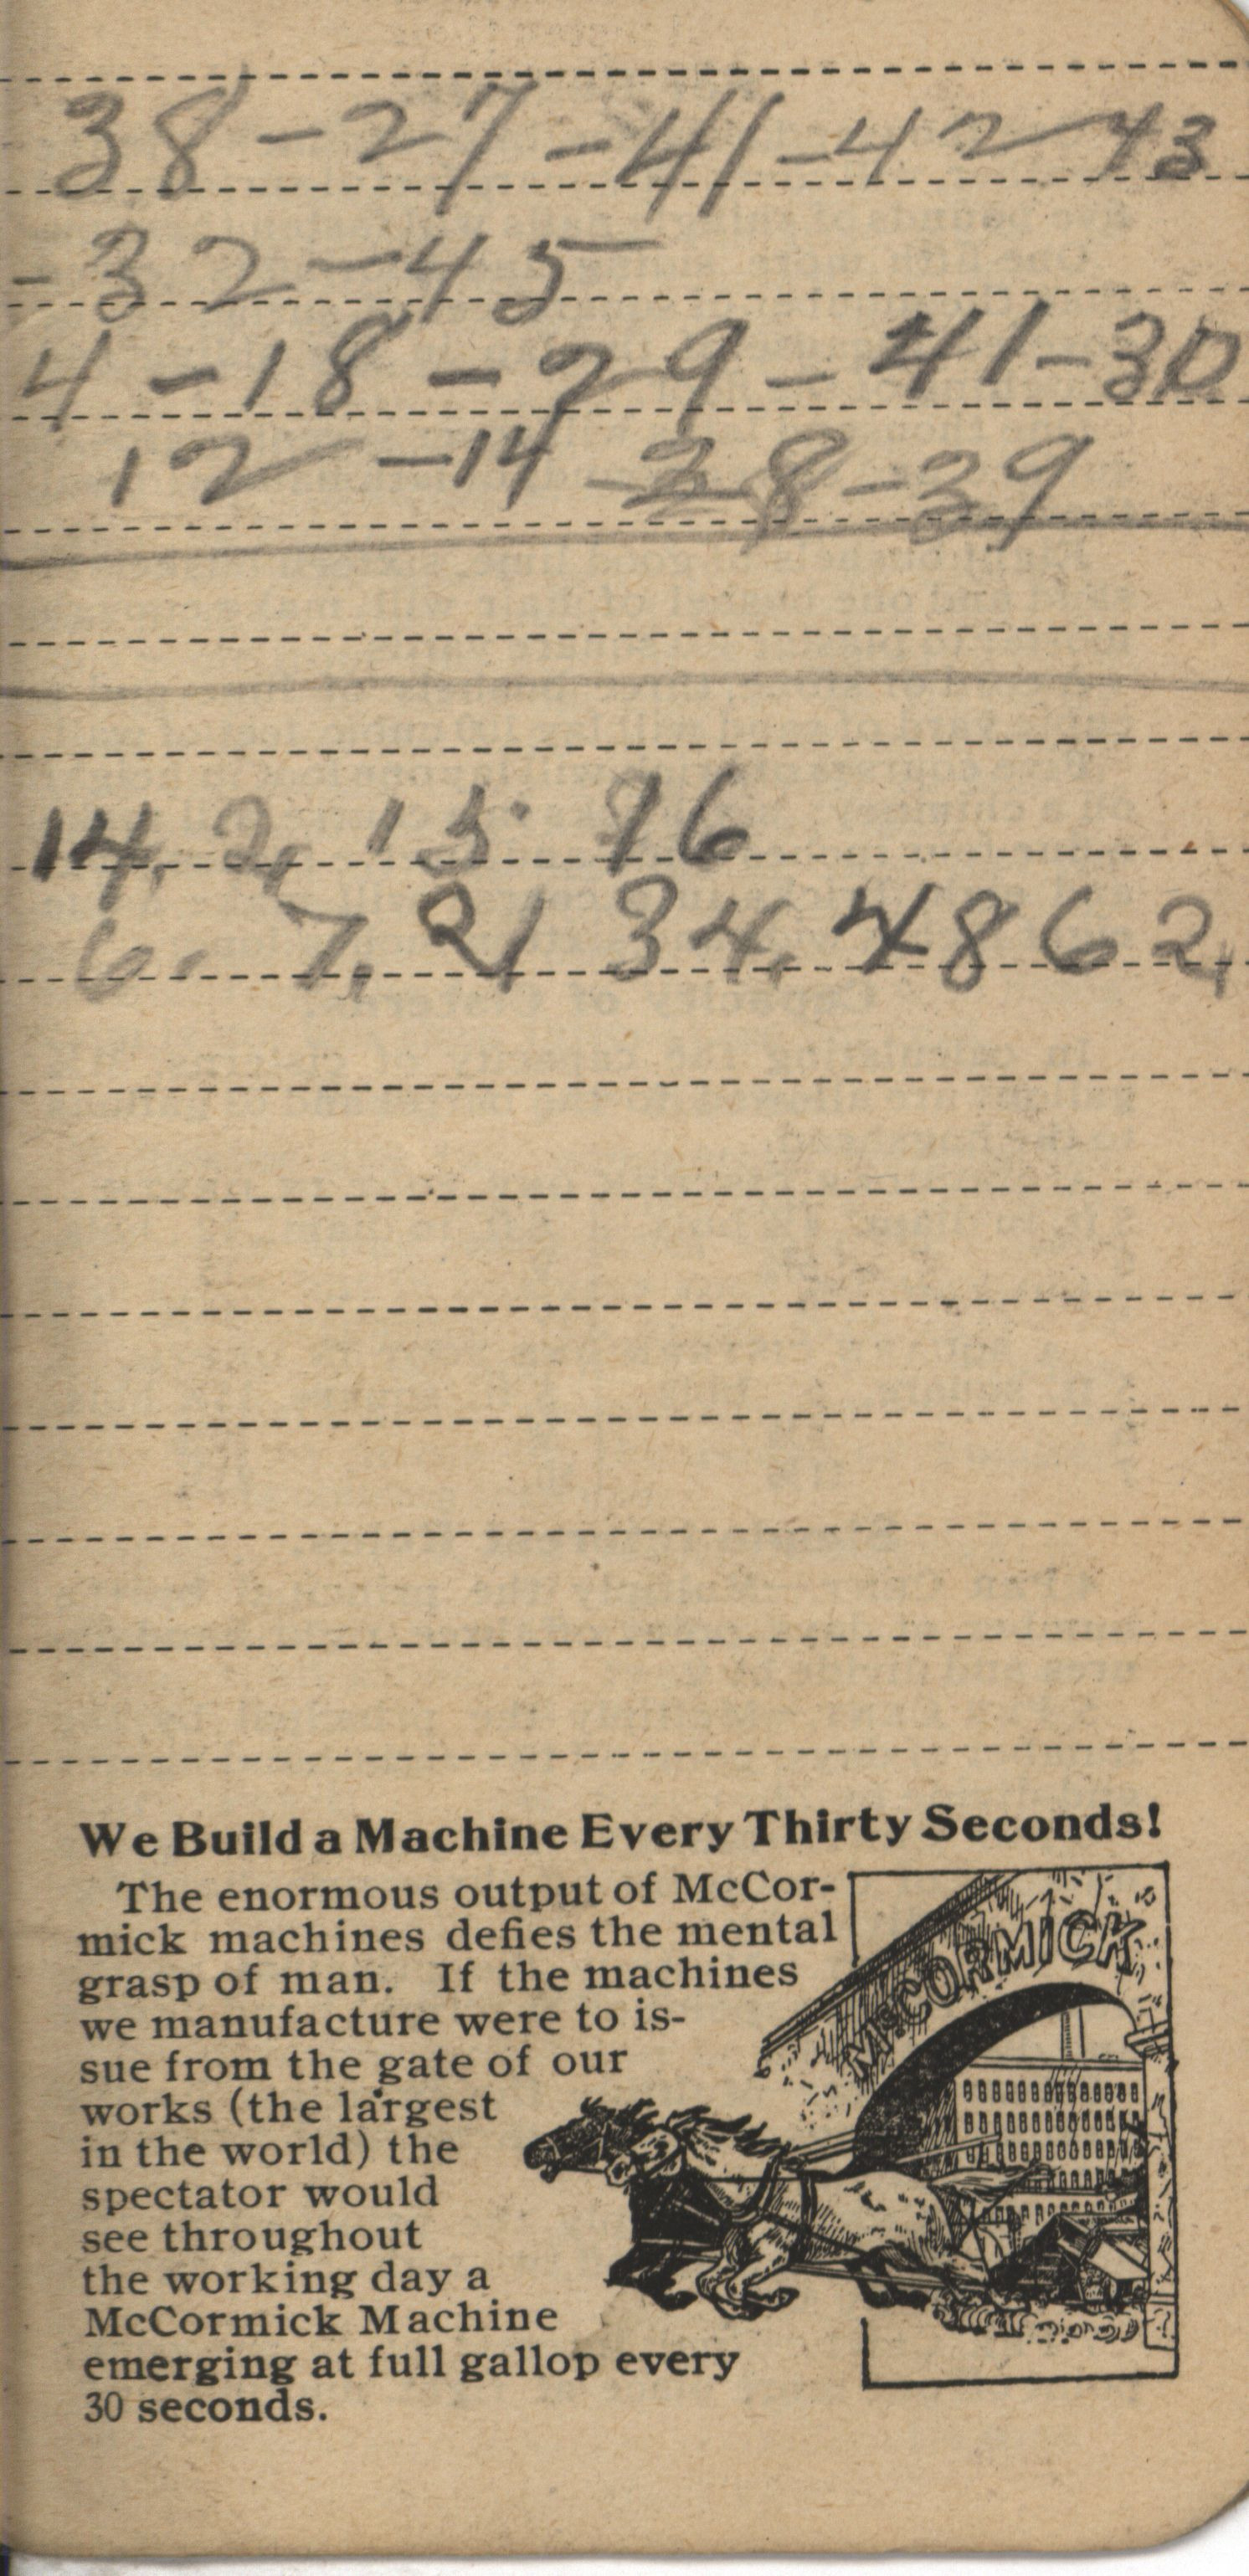 38-27-41-42-43
-32-45-
4-18-29-41-30
12-14-28-39
14, 2, 15. 16
6. 7, 21 34, 48 62,
We Build a Machine Every Thirty Seconds!
The enormous output of McCor-
mick machines defies the mental
grasp of man. If the machines
we manufacture were to is-
sue from the gate of our
works (the largest
in the world) the
spectator would
see throughout
the working day a
McCormick Machine
emerging at full gallop every
30 seconds.
McCORMICK